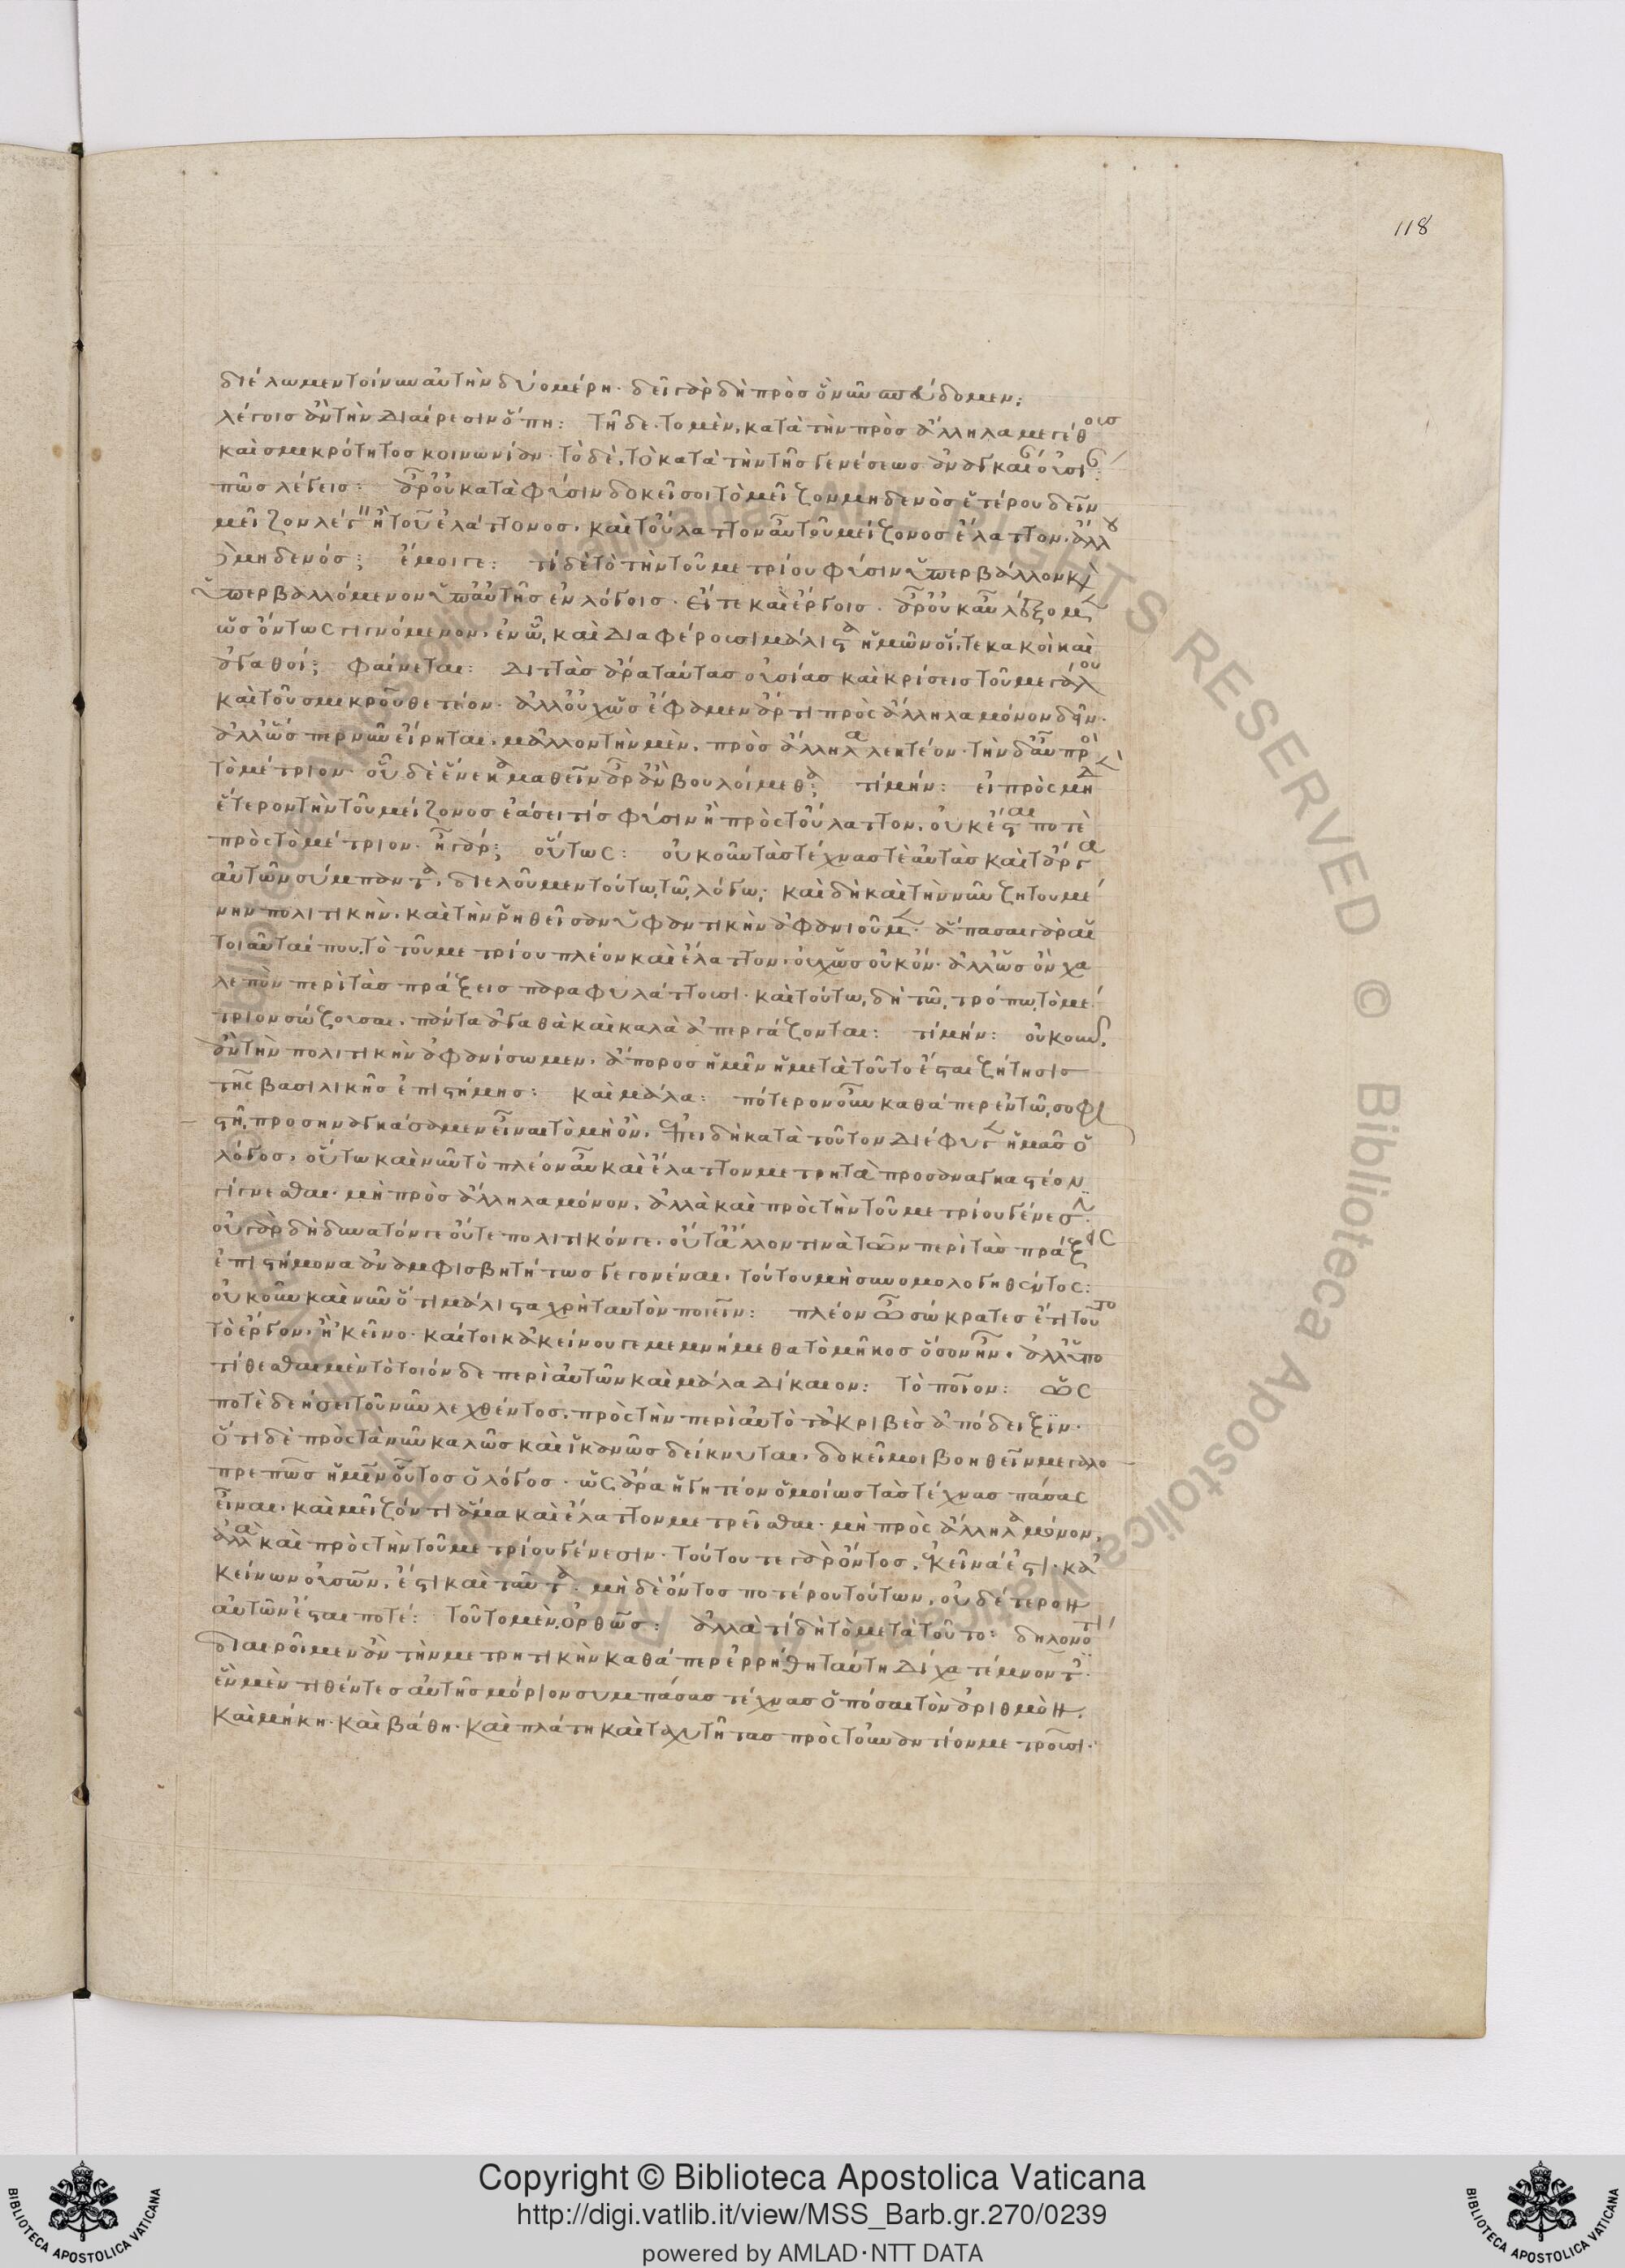 118
διέλωμεν τοίνυν αὐτὴν δύο μέρη· δεῖ γὰρ δὴ πρὸς ὃ νῦν σπεύδομεν:
λέγοις ἂν τὴν διαίρεσιν ὅπη: τῇδε· τὸ μὲν, κατὰ τὴν πρὸς ἄλληλα μεγέθους
καὶ σμικρότητος κοινωνίαν· τὸ δὲ, τὸ κατὰ τὴν τῆς γενέσεως ἀναγκαίαν οὐσίαν:
πῶς λέγεις: ἆρ' οὐ κατὰ φύσιν δοκεῖ σοι τὸ μεῖζον μηδενὸς ἑτέρου δεῖν
μεῖζον λέγειν ἢ τοῦ ἐλάττονος, καὶ τοὔλαττον αὖ τοῦ μείζονος ἔλαττον, ἄλλου
δὲ μηδενός; ἔμοιγε: τί δὲ τὸ τὴν τοῦ μετρίου φύσιν ὑπερβάλλον καὶ
ὑπερβαλλόμενον ὑπ' αὐτῆς ἐν λόγοις· εἴτε καὶ ἔργοις· ἆρ' οὐκ αὖ λέξομεν
ὡς ὄντως γιγνόμενον, ἐν ᾧ, καὶ διαφέρουσι μάλιστα ἡμῶν οἵ, τε κακοὶ καὶ
ἀγαθοί; φαίνεται: διττὰς ἄρα ταύτας οὐσίας καὶ κρίσεις τοῦ μεγάλου
καὶ τοῦ σμικροῦ θετέον· ἀλλ' οὐχ ὡς ἔφαμεν ἄρτι πρὸς ἄλληλα μόνον δεῖν·
ἀλλ' ὥσπερ νῦν εἴρηται, μᾶλλον τὴν μὲν, πρὸς ἄλληλα λεκτέον· τὴν δ' αὖ πρὸς
τὸ μέτριον· οὗ δὲ ἕνεκα μαθεῖν ἆρ' ἂν βουλοίμεθα; τί μήν: εἰ πρὸς μηδὲν
ἕτερον τὴν τοῦ μείζονος ἐάσει τίς φύσιν ἢ πρὸς τοὔλαττον, οὐκ ἔσται ποτὲ
πρὸς τὸ μέτριον· ἦ γάρ; οὕτως: οὐκοῦν τὰς τέχνας τὲ αὐτὰς καὶ τἆργα
αὐτῶν σύμπαντα, διελοῦμεν τούτῳ τῷ λόγῳ; καὶ δὴ καὶ τὴν νῦν ζητουμέ
νην πολιτικὴν, καὶ τὴν ῥηθεῖσαν ὑφαντικὴν ἀφανιοῦμεν· ἅπασαι γὰρ αἱ
τοιαῦταί που, τὸ τοῦ μετρίου πλέον καὶ ἔλαττον, οὐχ ὡς οὐκ ὂν· ἀλλ' ὡς ὂν χα
λεπὸν περὶ τὰς πράξεις παραφυλάττουσι· καὶ τούτῳ δὴ τῷ τρόπῳ, τὸ μέ
τριον σώζουσαι, πάντα ἀγαθὰ καὶ καλὰ ἀπεργάζονται: τί μήν: οὐκοῦν
ἂν τὴν πολιτικὴν ἀφανίσωμεν, ἄπορος ἡμῖν ἡ μετὰ τοῦτο ἔσται ζήτησις
τῆς βασιλικῆς ἐπιστήμης: καὶ μάλα: πότερον οὖν καθάπερ ἐν τῷ σοφι
στῇ προσηναγκάσαμεν εἶναι τὸ μὴ ὂν, ἐπειδὴ κατὰ τοῦτον διέφυγεν ἡμᾶς ὁ
λόγος, οὕτω καὶ νῦν τὸ πλέον αὖ καὶ ἔλαττον μετρητὰ προσαναγκαστέον
γίγνεσθαι· μὴ πρὸς ἄλληλα μόνον, ἀλλὰ καὶ πρὸς τὴν τοῦ μετρίου γένεσιν·
οὐ γὰρ δὴ δυνατόν γε οὔτε πολιτικόν γε, οὔτ' ἄλλον τινὰ τῶν περὶ τὰς πράξεις
ἐπιστήμονα ἀναμφισβητήτως γεγονέναι, τούτου μὴ συνομολογηθέντος:
οὐκοῦν καὶ νῦν ὅ τι μάλιστα χρὴ ταυτὸν ποιεῖν: πλέον ὦ σώκρατες ἔτι τοῦτο
τὸ ἔργον, ἢ 'κεῖνο· καίτοι κἀκείνου γε μεμνήμεθα τὸ μῆκος ὅσον ἦν, ἀλλ' ὑπο
τίθεσθαι μὲν τὸ τοιόνδε περὶ αὐτῶν καὶ μάλα δίκαιον: τὸ ποῖον: ὥς
ποτὲ δεήσει τοῦ νῦν λεχθέντος, πρὸς τὴν περὶ αὐτὸ τἀκριβὲς ἀπόδειξιν·
ὅτι δὲ πρὸς τὰ νῦν καλῶς καὶ ἱκανῶς δείκνυται, δοκεῖ μοι βοηθεῖν μεγαλο
πρεπῶς ἡμῖν οὗτος ὁ λόγος· ὡς ἄρα ἡγητέον ὁμοίως τὰς τέχνας πάσας
εἶναι, καὶ μεῖζόν τι ἅμα καὶ ἔλαττον μετρεῖσθαι· μὴ πρὸς ἄλληλα μόνον,
ἀλλὰ καὶ πρὸς τὴν τοῦ μετρίου γένεσιν· τούτου τε γὰρ ὄντος, ἐκεῖνά ἐστι· κἀ
κείνων οὐσῶν, ἔστι καὶ ταῦτα· μὴ δὲ ὄντος ποτέρου τούτων, οὐδέτερον
αὐτῶν ἔσται ποτέ: τοῦτο μὲν, ὀρθῶς: ἀλλὰ τί δὴ τὸ μετὰ τοῦτο: δῆλον ὅτι
διαιροῖμεν ἂν τὴν μετρητικὴν καθάπερ ἐρρήθη ταύτῃ δίχα τέμνοντες·
ἓν μὲν τιθέντες αὐτῆς μόριον συμπάσας τέχνας ὁπόσαι τὸν ἀριθμὸν,
καὶ μήκη· καὶ βάθη· καὶ πλάτη καὶ ταχυτῆτας πρὸς τοὐναντίον μετροῦσι·
Copyright © Biblioteca Apostolica Vaticana
http://digi.vatlib.it/view/MSS_Barb.gr.270/0239
powered by AMLAD·NTT DATA